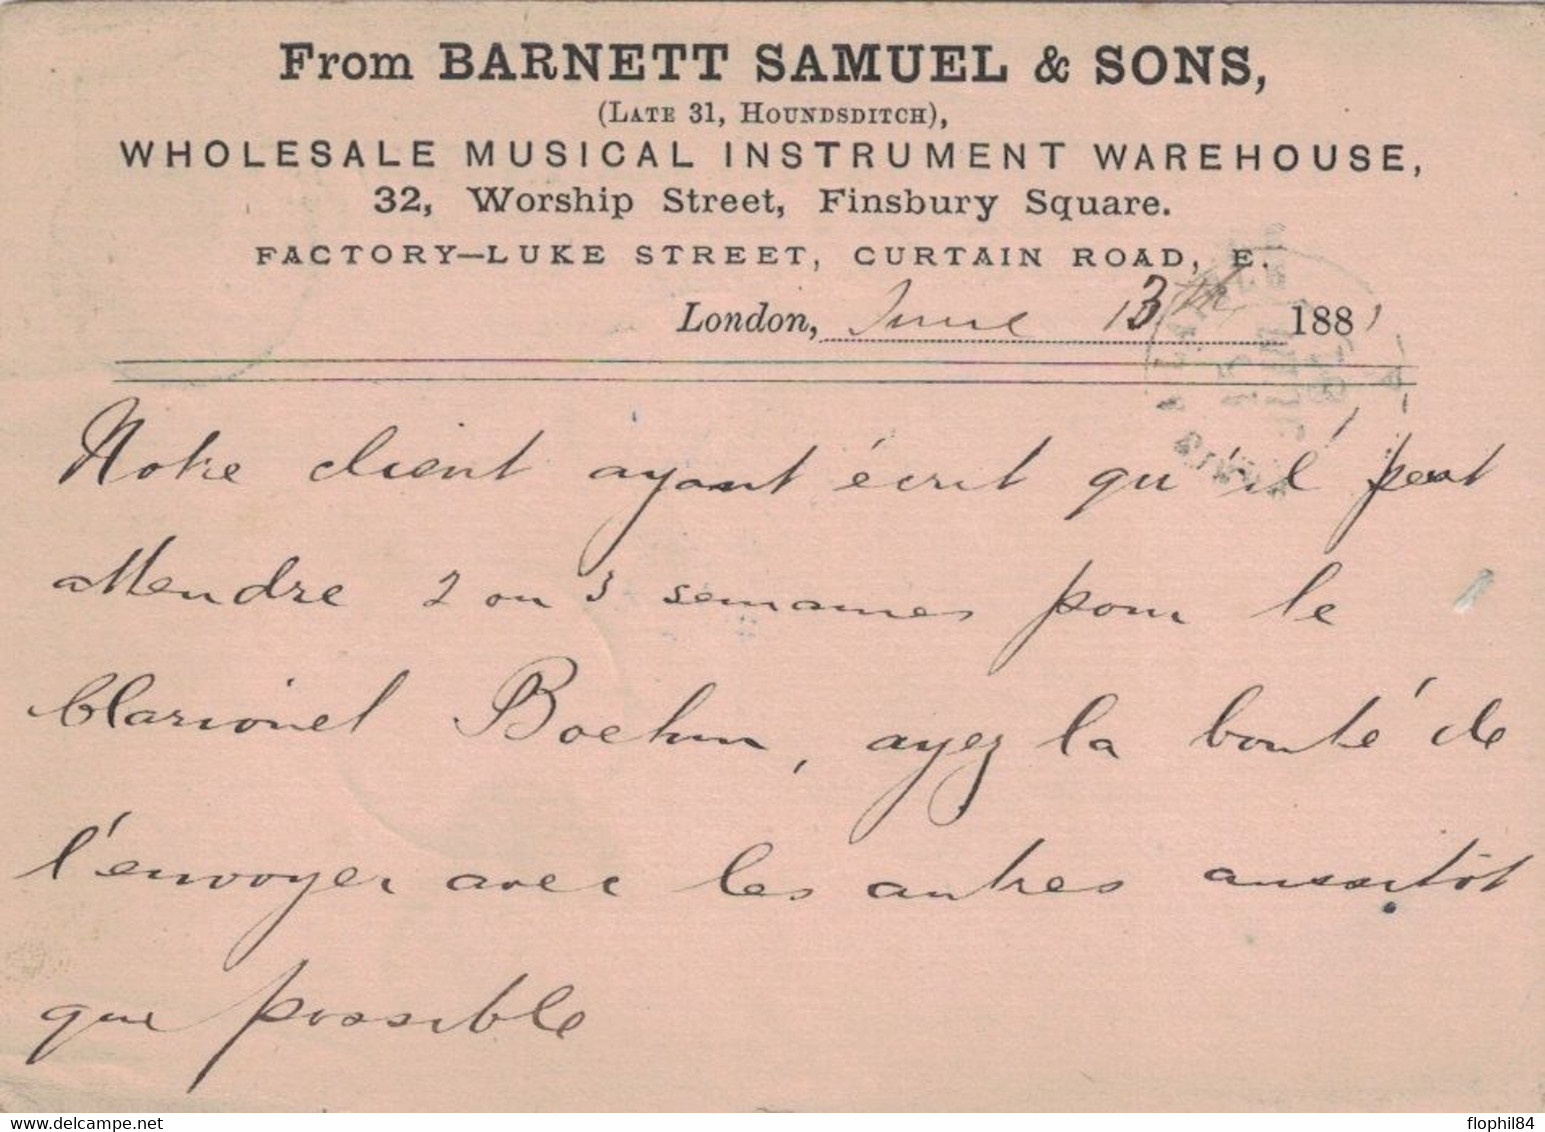 From BARNETT SAMUEL & SONS,
(LATE 31, HOUNDSDITCH),
WHOLESALE MUSICAL INSTRUMENT WAREHOUSE,
32, Worship Street, Finsbury Square.
FACTORY—LUKE STREET, CURTAIN ROAD, E.
London, June 13th 1881
Notre client ayant écrit qu'il peut
attendre 2 ou 3 semaines pour le
Clarionet Boehm, ayez la bonté de
l'envoyer avec les autres aussitôt
que possible
flophil84